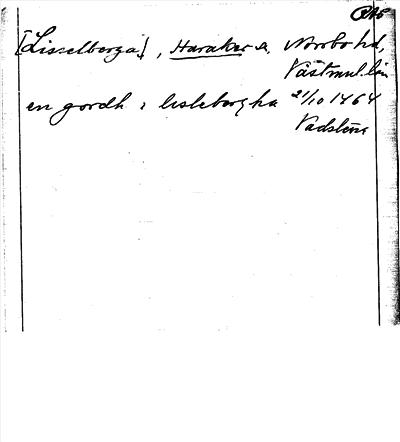 [Lisselberga], Haraker sn, Norrbo hd,
Västmanl. län
en gordh i lisleberghа 21/10 1464
Vadstena